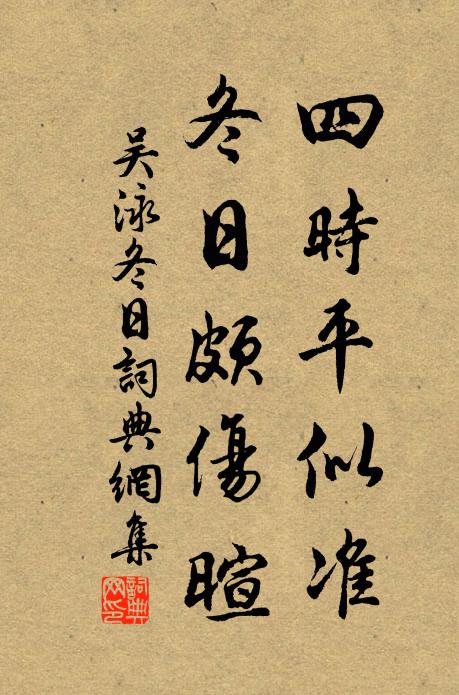 四時平似准
冬日頗傷暄
吴泳冬日詞典網集
詞典网印